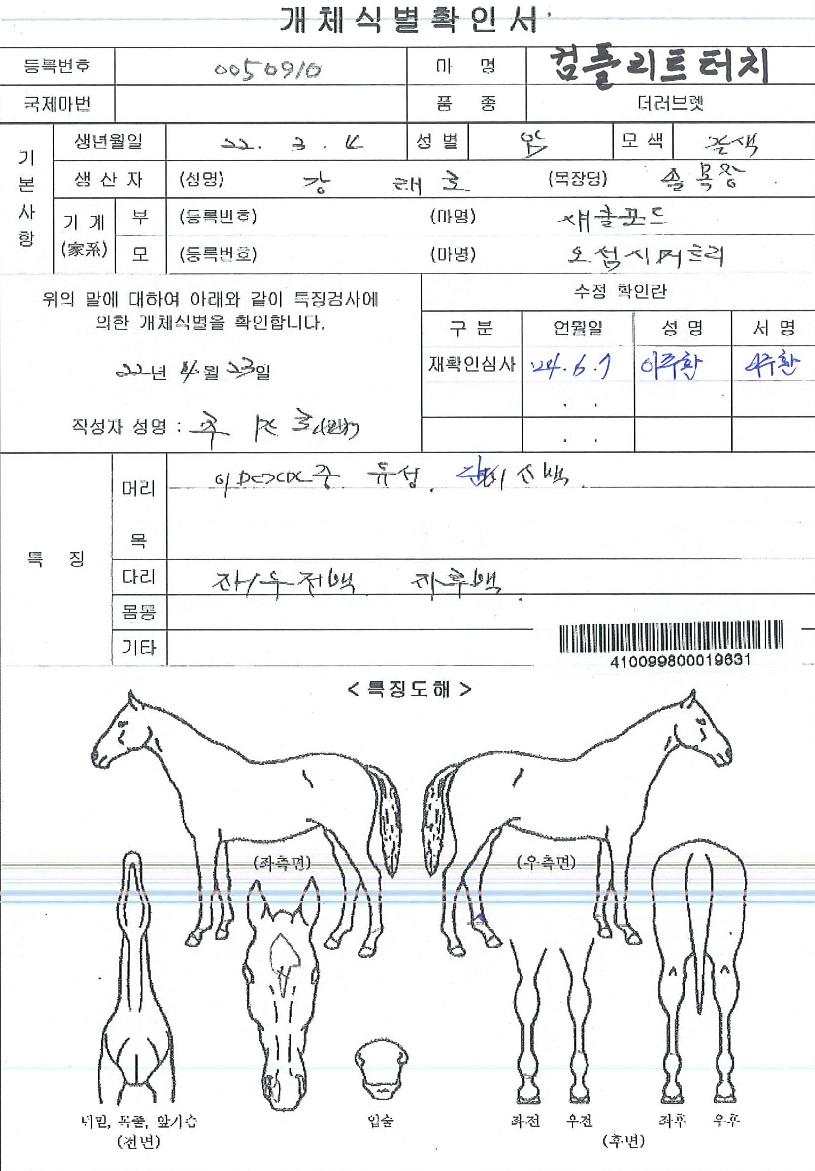 개체식별확인서
등록번호 0050910 마 명 컴플리트터치
국제마번 품 종 더러브렛
기본사항
생년월일 22. 3. 4 성별 암 모색 갈색
생산자 (성명) 강 태 호 (목장명) 솔목장
기계(家系) 부 (등록번호) (마명) 섀클포드
모 (등록번호) (마명)
위의 말에 대하여 아래와 같이 특징검사에
의한 개체식별을 확인합니다.
22년 4월 23일
작성자 성명 :
수정 확인란
구 분 연월일 성 명 서 명
재확인심사 '24.6.7 이주환 이주환
. .
. .
특 징
머리 유성.
목
다리 좌후백
몸통
기타
410099800019631
< 특징도해 >
(좌측면) (우측면)
턱밑, 목줄, 앞가슴 입술 좌전 우전 좌후 우후
(전면) (후면)